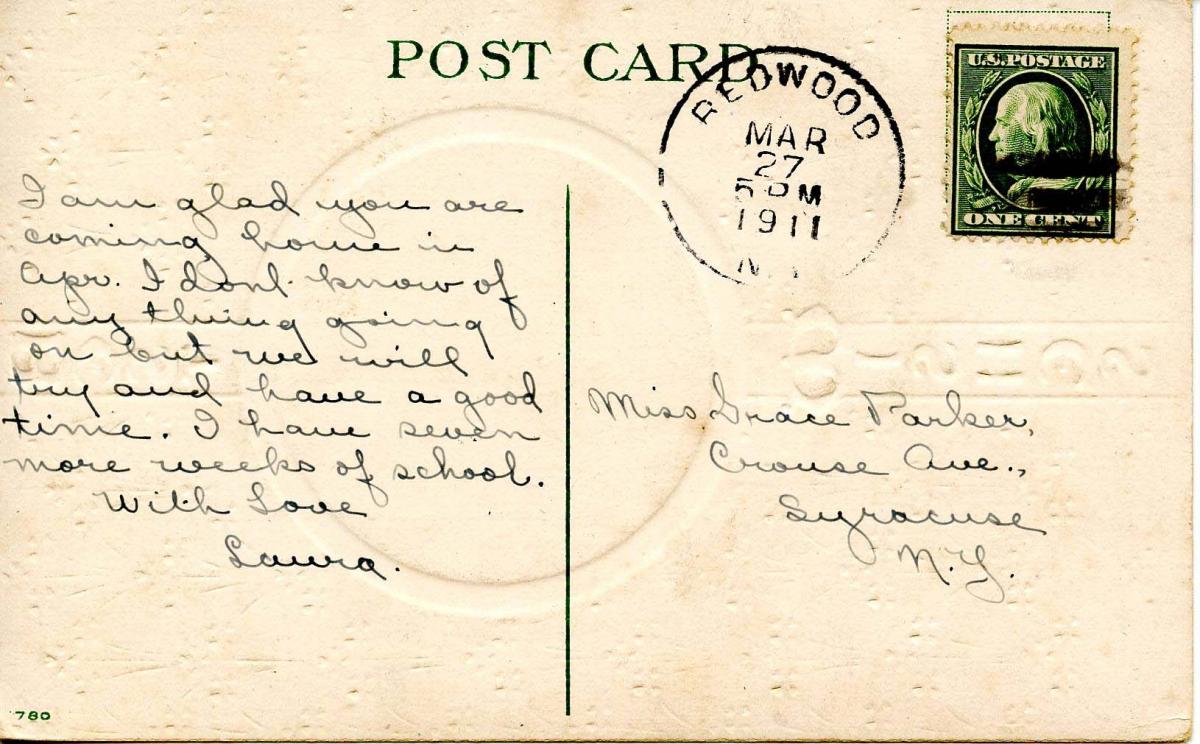 POST CARD
REDWOOD
MAR
27
5 PM
1911
N.Y.
U.S. POSTAGE
ONE CENT
I am glad you are
coming home in
Apr. I dont know of
any thing going
on but we will
try and have a good
time. I have seven
more weeks of school.
With Love
Laura.
Miss Grace Parker,
Crouse Ave.,
Syracuse
N.Y.
780